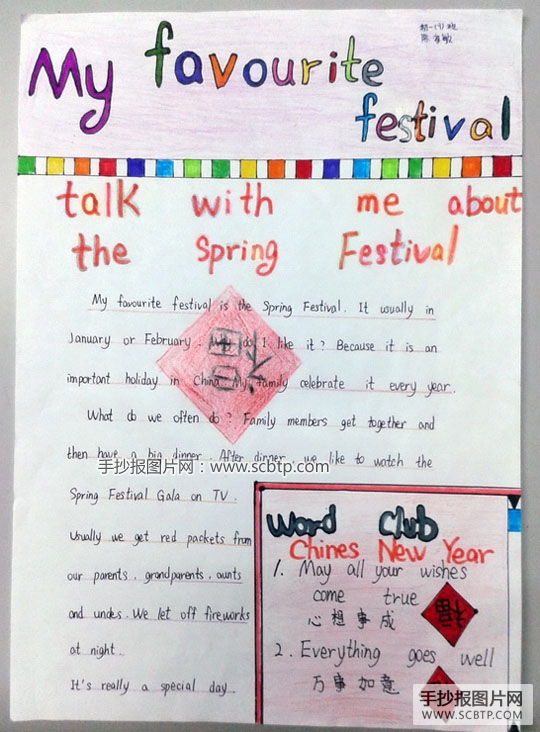 初一(1)班
My favourite
festival
talk with me about
the Spring Festival
My favourite festival is the Spring Festival. It usually in
January or February. Why do I like it? Because it is an
important holiday in China. My family celebrate it every year.
What do we often do? Family members get together and
then have a big dinner. After dinner, we like to watch the
手抄报图片网:www.scbtp.com
Spring Festival Gala on TV.
Usually we get red packets from
our parents, grandparents, aunts
and uncles. We let off fireworks
at night.
It's really a special day.
福
Word Club
Chines New Year
1. May all your wishes
come true
心想事成
福
2. Everything goes well
万事如意
手抄报图片网
WWW.SCBTP.COM